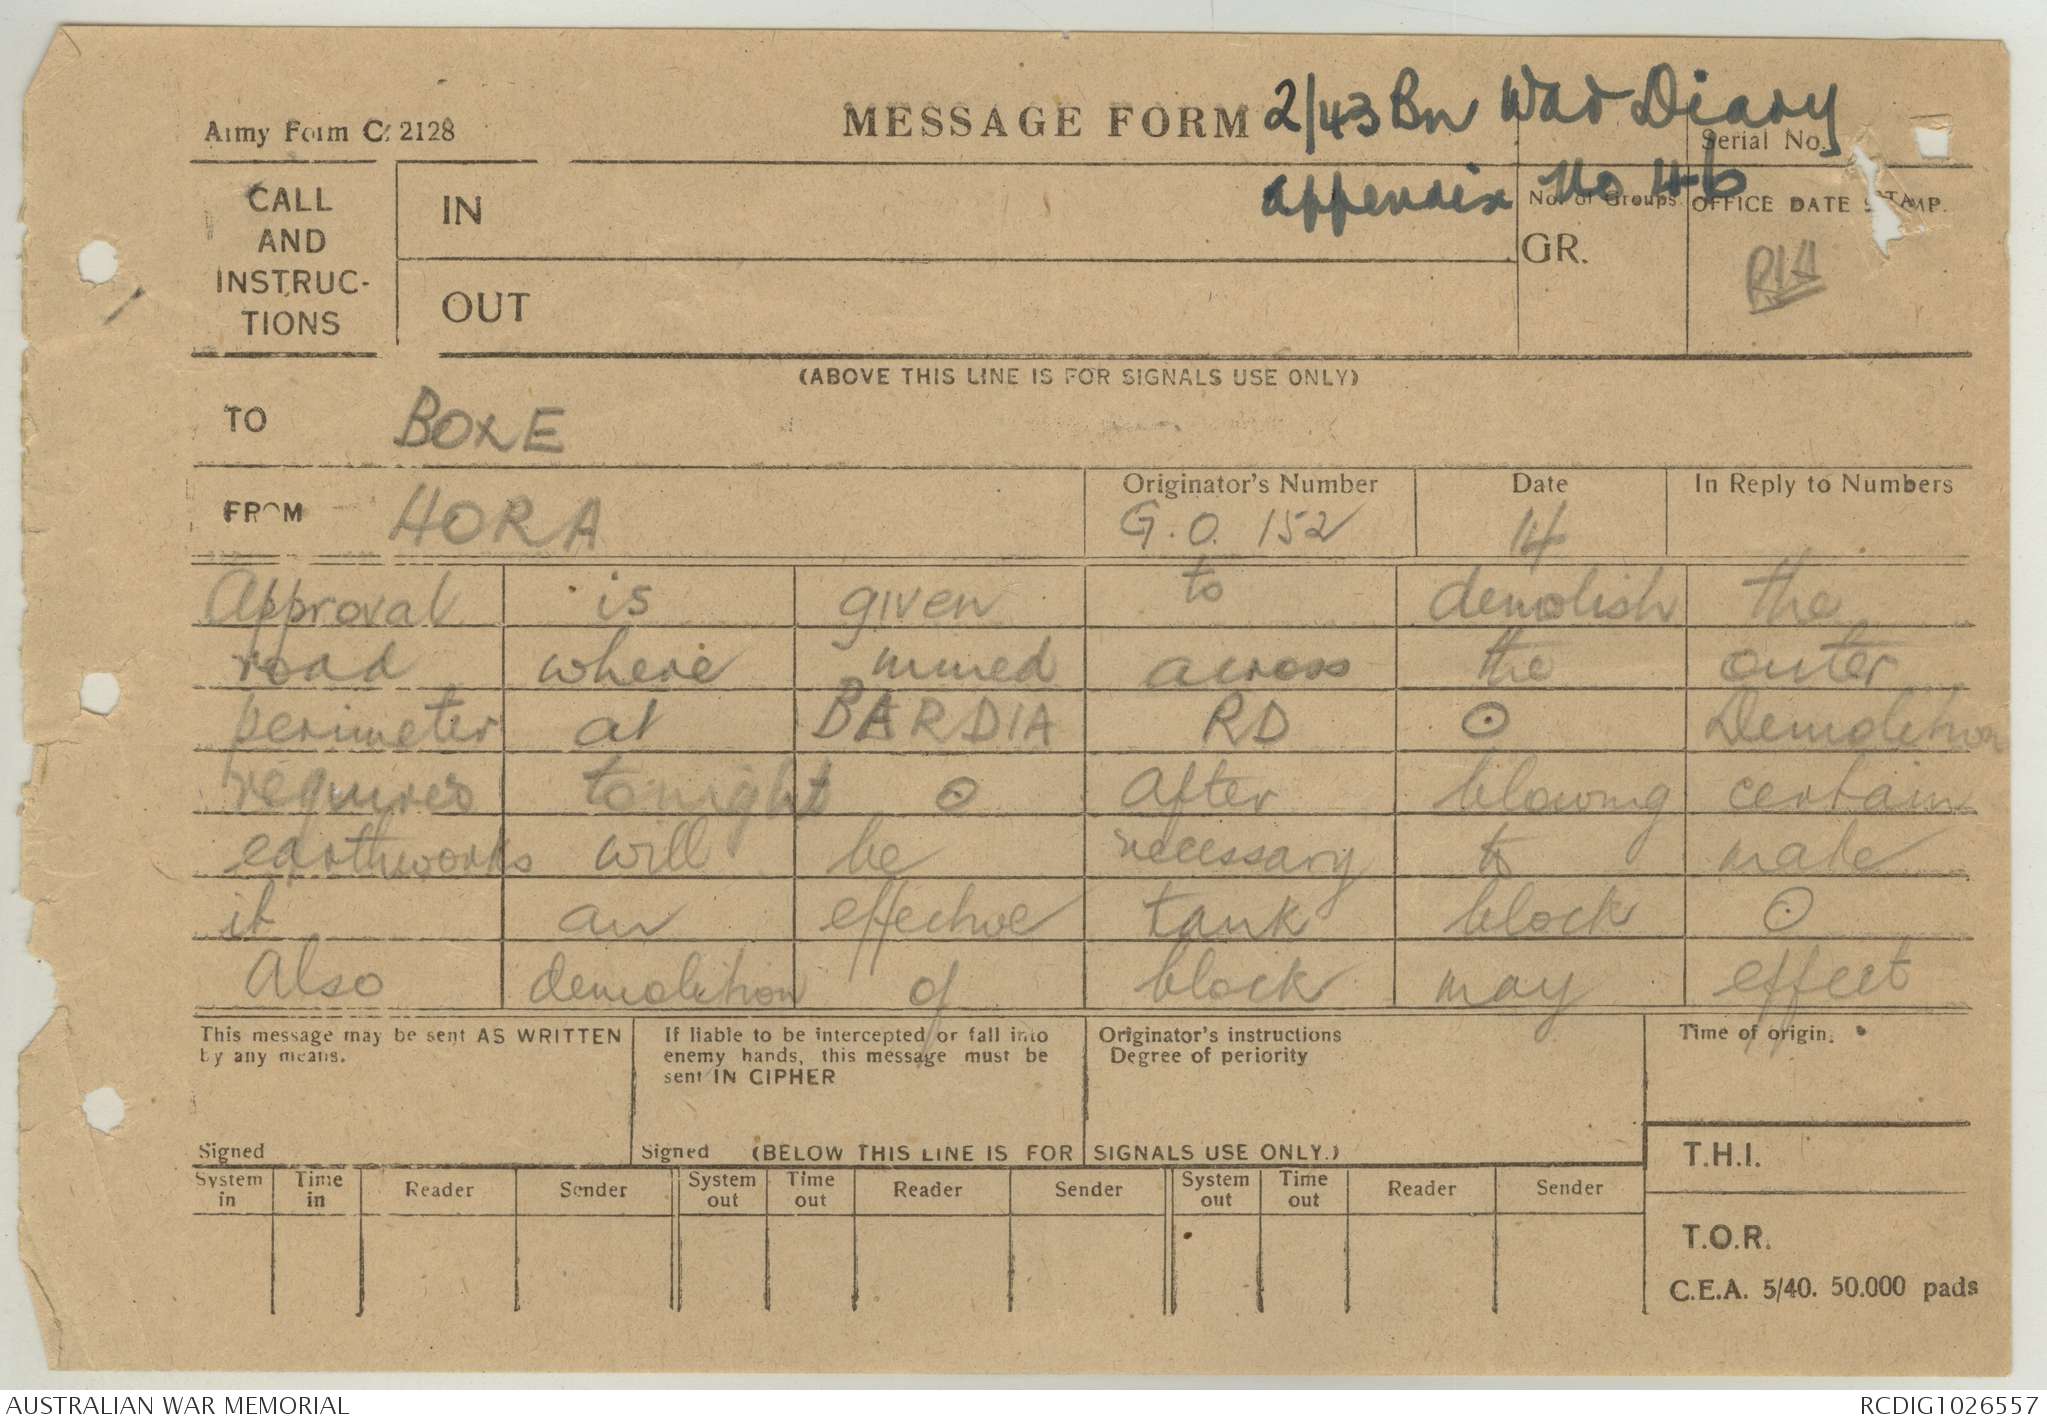 Army Form C. 2128
MESSAGE FORM
2/43 Bn War Diary
Appendix No 46
Serial No.
CALL AND INSTRUC-TIONS
IN
OUT
No. of Groups
GR.
OFFICE DATE STAMP.
(ABOVE THIS LINE IS FOR SIGNALS USE ONLY)
TO BOXE
FROM HORA
Originator's Number
G.O. 152
Date
14
In Reply to Numbers
Approval is given to demolish the
road where mined across the outer
perimeter at BARDIA RD ⊙ Demolition
requires tonight ⊙ After blowing certain
earthworks will be necessary to make
it an effective tank block ⊙
Also demolition of block may effect
This message may be sent AS WRITTEN
by any means.
Signed
If liable to be intercepted or fall into
enemy hands, this message must be
sent IN CIPHER
Signed
Originator's instructions
Degree of periority
Time of origin.
(BELOW THIS LINE IS FOR SIGNALS USE ONLY.)
T.H.I.
System in Time in Reader Sender System out Time out Reader Sender System out Time out Reader Sender
T.O.R.
C.E.A. 5/40. 50.000 pads
AUSTRALIAN WAR MEMORIAL
RCDIG1026557